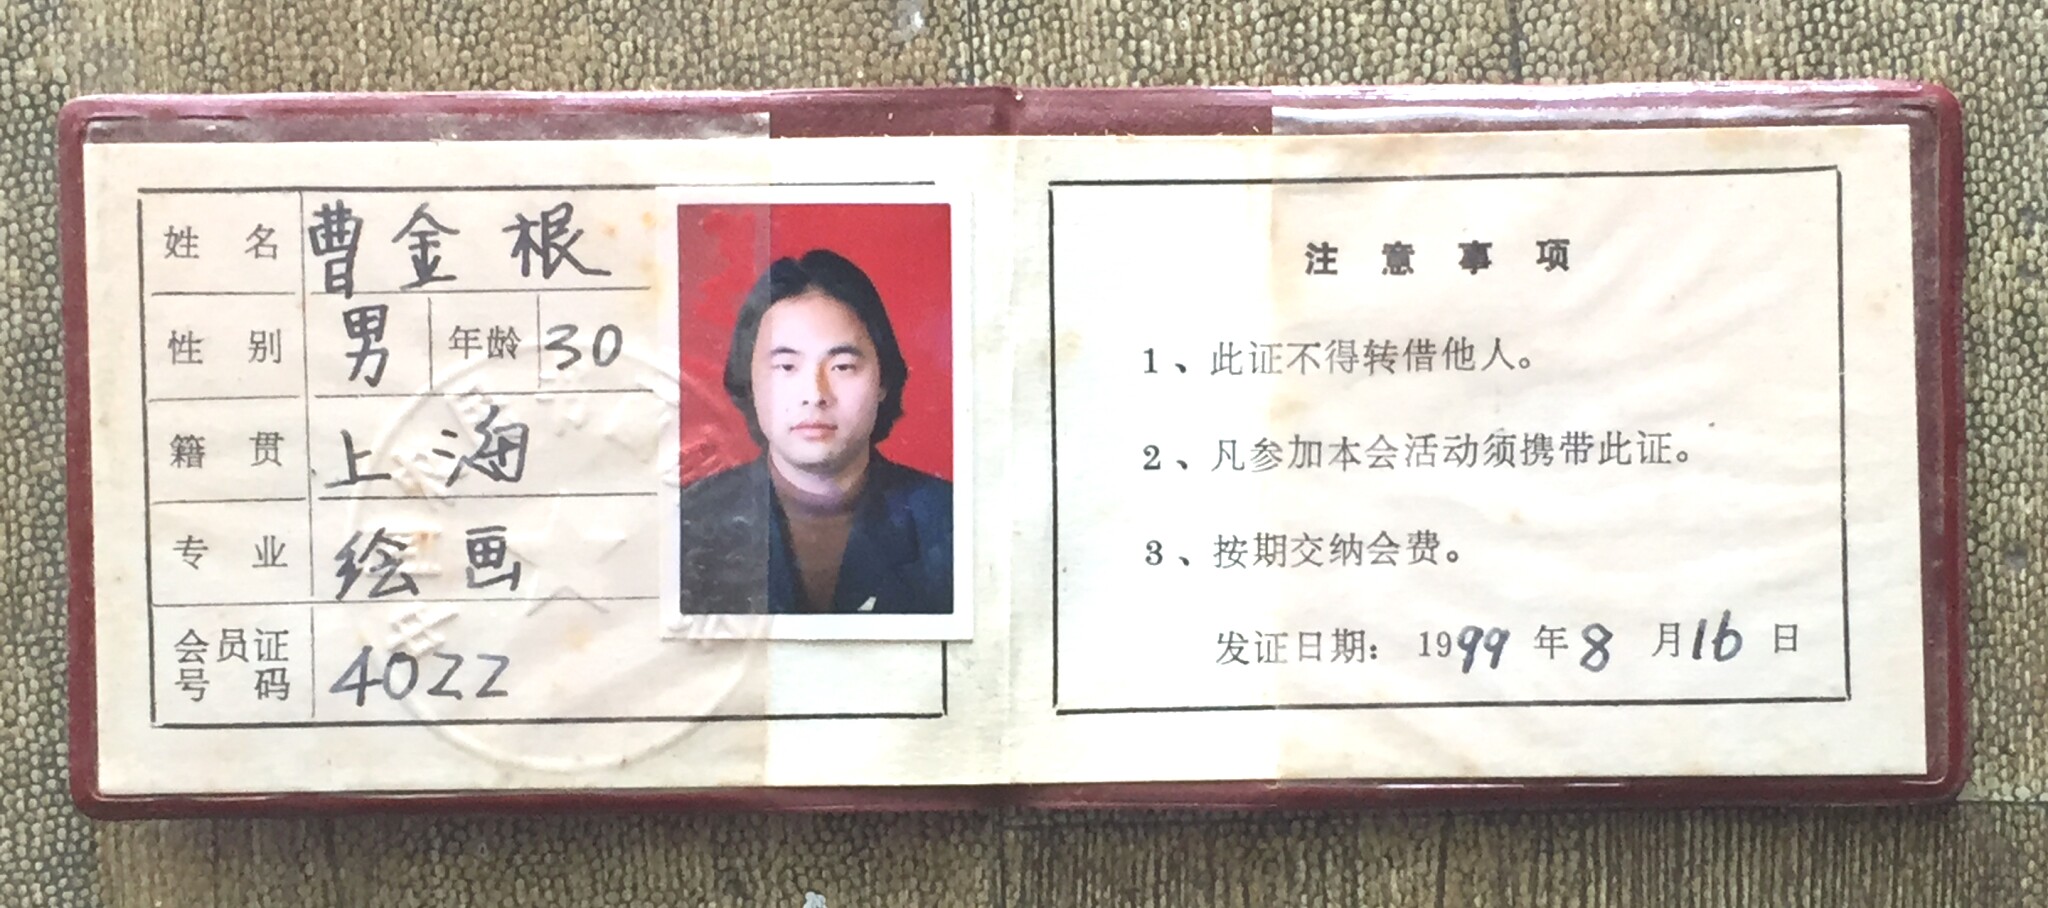 姓 名 曹金根
性 别 男 年龄 30
籍 贯 上海
专 业 绘画
会员证
号 码 4022
注意事项
1、此证不得转借他人。
2、凡参加本会活动须携带此证。
3、按期交纳会费。
发证日期: 1999年8月16日